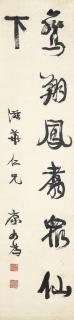 鸞翔鳳翥眾仙
下
華仁兄
康有為